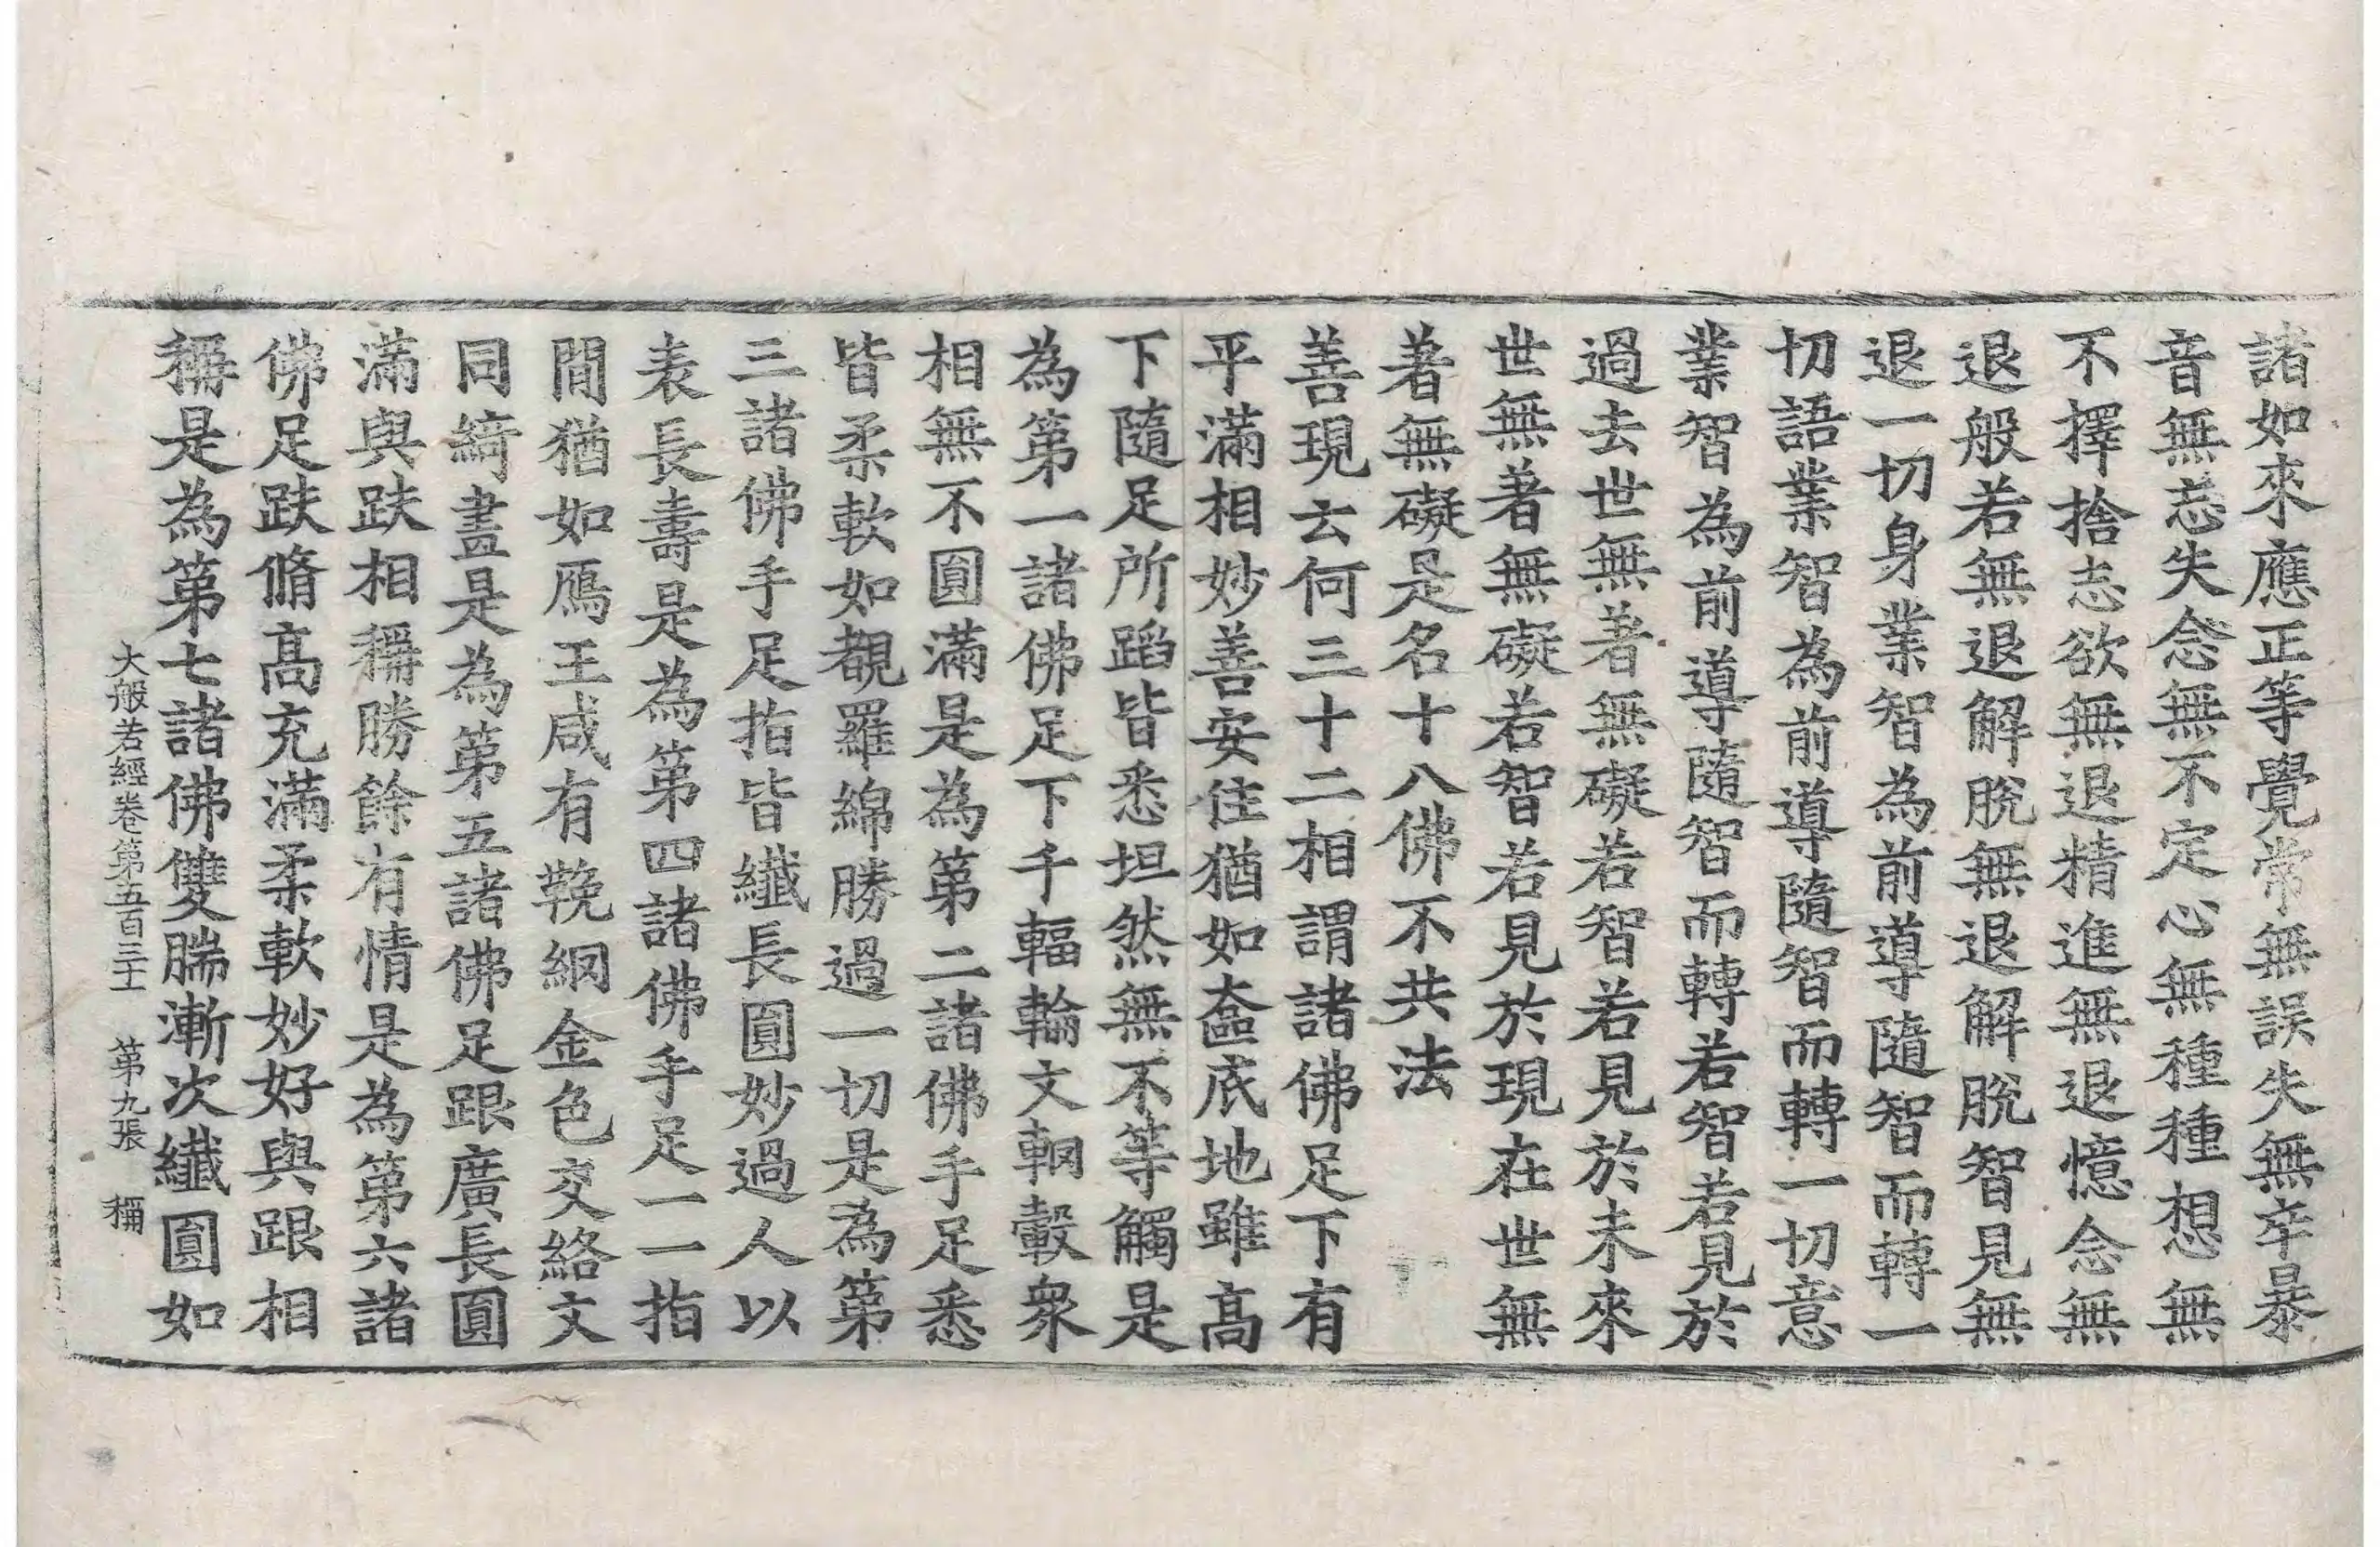 諸如來應正等覺常無誤失無卒暴
音無忘失念無不定心無種種想無
不擇捨志欲無退精進無退憶念無
退般若無退解脫無退解脫智見無
退一切身業智為前導隨智而轉一
切語業智為前導隨智而轉一切意
業智為前導隨智而轉若智若見於
過去世無著無礙若智若見於未來
世無著無礙若智若見於現在世無
著無礙是名十八佛不共法
善現云何三十二相謂諸佛足下有
平滿相妙善安住猶如奩底地雖高
下隨足所蹈皆悉坦然無不等觸是
為第一諸佛足下千輻輪文輞轂衆
相無不圓滿是為第二諸佛手足悉
皆柔軟如覩羅綿勝過一切是為第
三諸佛手足指皆纖長圓妙過人以
表長壽是為第四諸佛手足一一指
間猶如鴈王咸有鞔網金色交絡文
同綺畫是為第五諸佛足跟廣長圓
滿與趺相稱勝餘有情是為第六諸
佛足趺脩高充滿柔軟妙好與跟相
稱是為第七諸佛雙腨漸次纖圓如
大般若經卷第五百三十一 第九張 稱